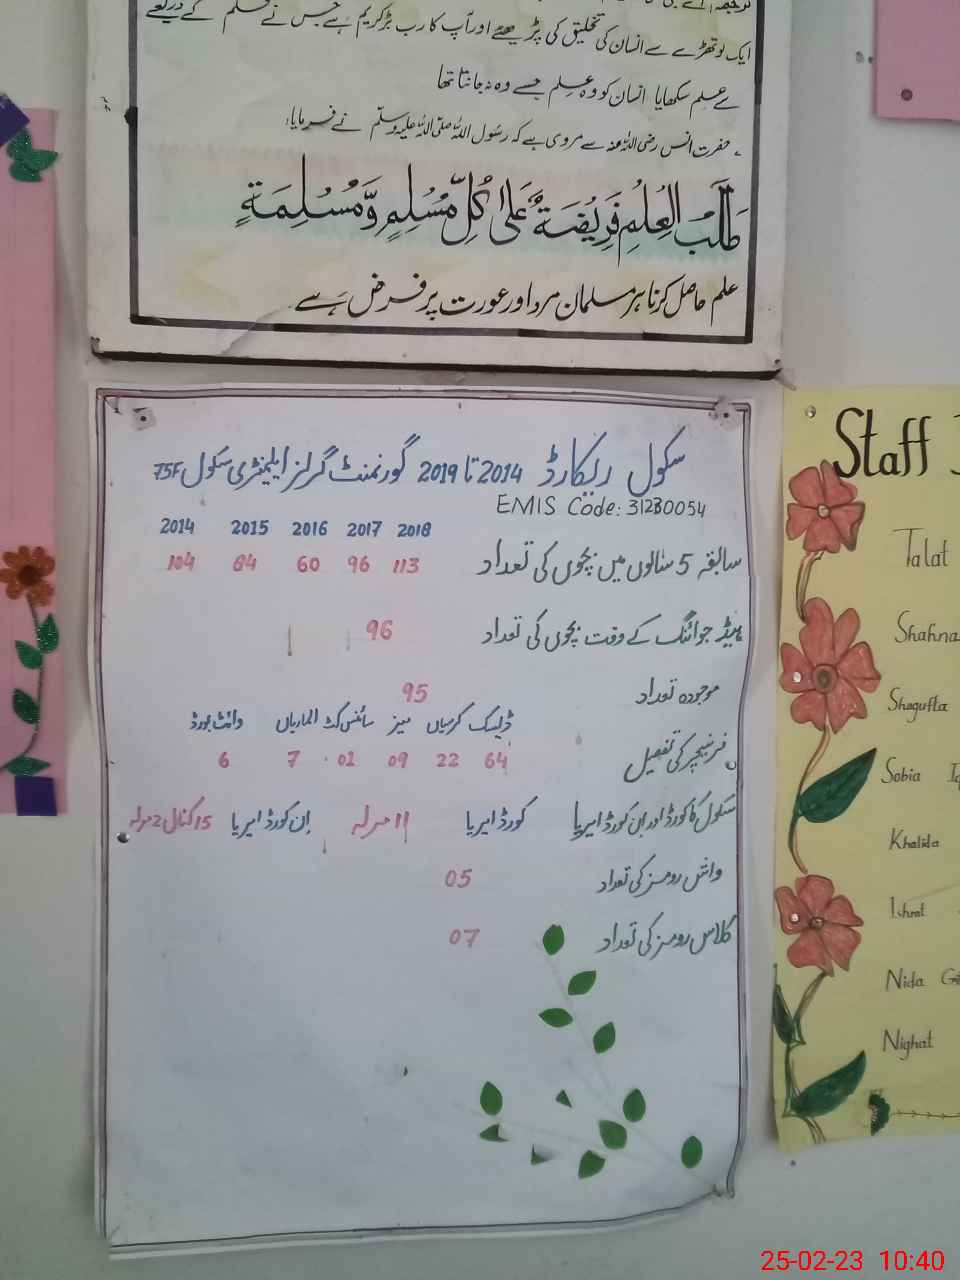 ایک لوتھڑے سے انسان کی تخلیق کی پڑھیئے اور آپ کا رب بڑا کریم ہے جس نے قلم کے ذریعے
سے علم سکھایا انسان کو وہ علم جسے وہ نہ جانتا تھا
حضرت انس رضی اللہ عنہ سے مروی ہے کہ رسول اللہ صلی اللہ علیہ وسلم نے فرمایا:
طَلَبُ الْعِلْمِ فَرِيْضَةٌ عَلىٰ كُلِّ مُسْلِمٍ وَّمُسْلِمَةٍ
علم حاصل کرنا ہر مسلمان مرد اور عورت پر فرض ہے
سکول ریکارڈ 2014 تا 2019 گورنمنٹ گرلز ایلیمنٹری سکول 75F
EMIS Code: 31230054
2014 2015 2016 2017 2018
سابقہ 5 سالوں میں بچوں کی تعداد 113 96 60 84 104
ہیڈ جوائننگ کے وقت بچوں کی تعداد 96
موجودہ تعداد 95
ڈیسک کرسیاں میز سائنس کٹ الماریاں وائٹ بورڈ
فرنیچر کی تفصیل 64 22 09 01 7 6
سکول کا کورڈ اور ان کورڈ ایریا کورڈ ایریا 11 مرلہ ان کورڈ ایریا 15 کنال 2 مرلہ
واش رومز کی تعداد 05
کلاس رومز کی تعداد 07
Staff
Talat
Shahna
Shagufta
Sobia
Khalida
Ishrat
Nida
Nighat
25-02-23 10:40